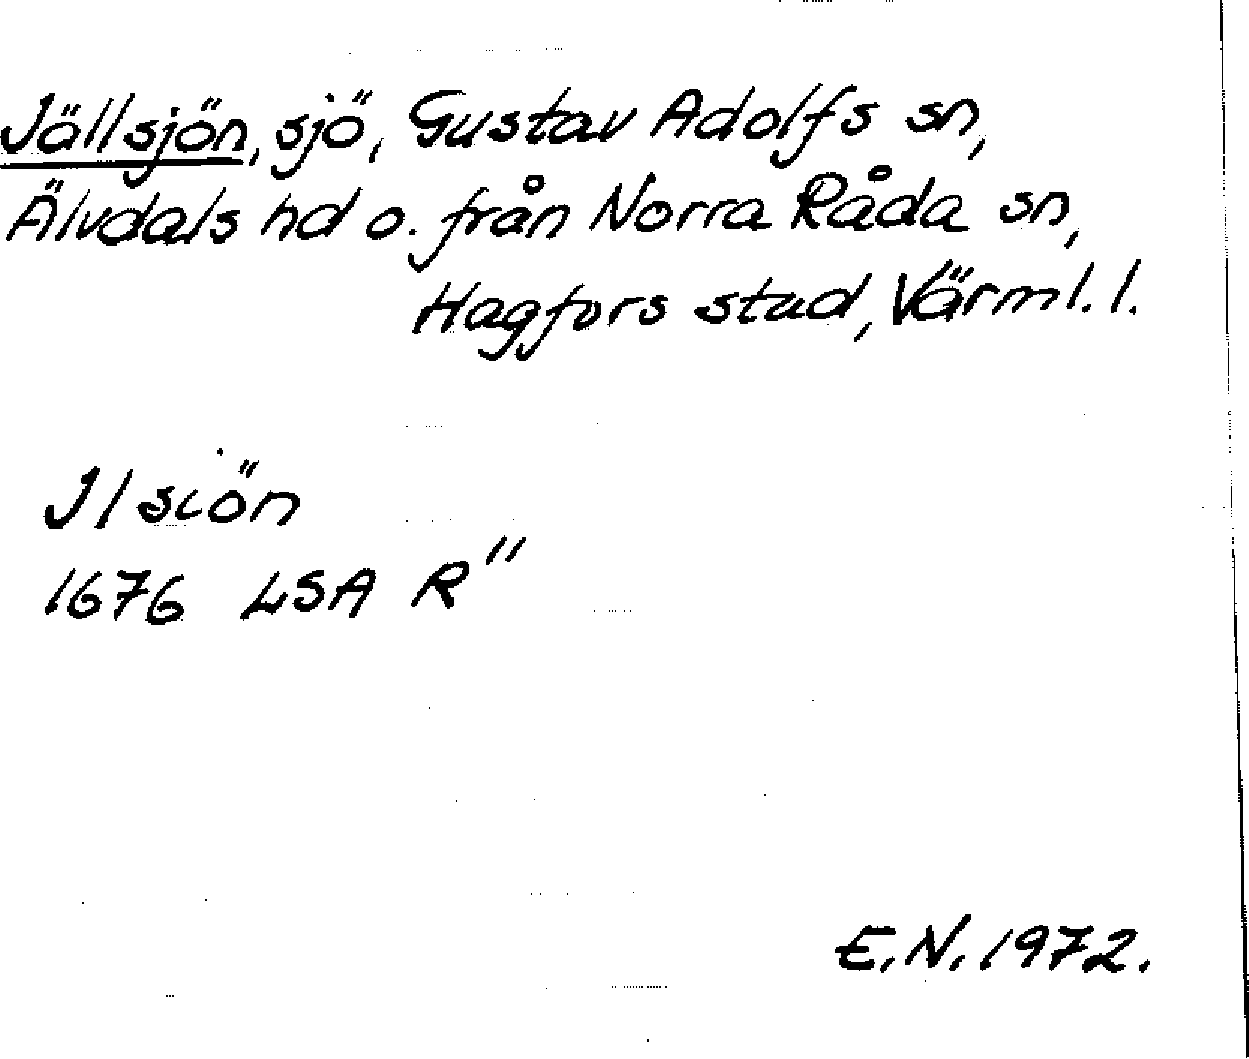 Jällsjön, sjö, Gustav Adolfs sn,
Älvdals hd o. från Norra Råda sn,
Hagfors stad, Värml. l.
Jlsiön
1676 LSA R"
E.N. 1972.